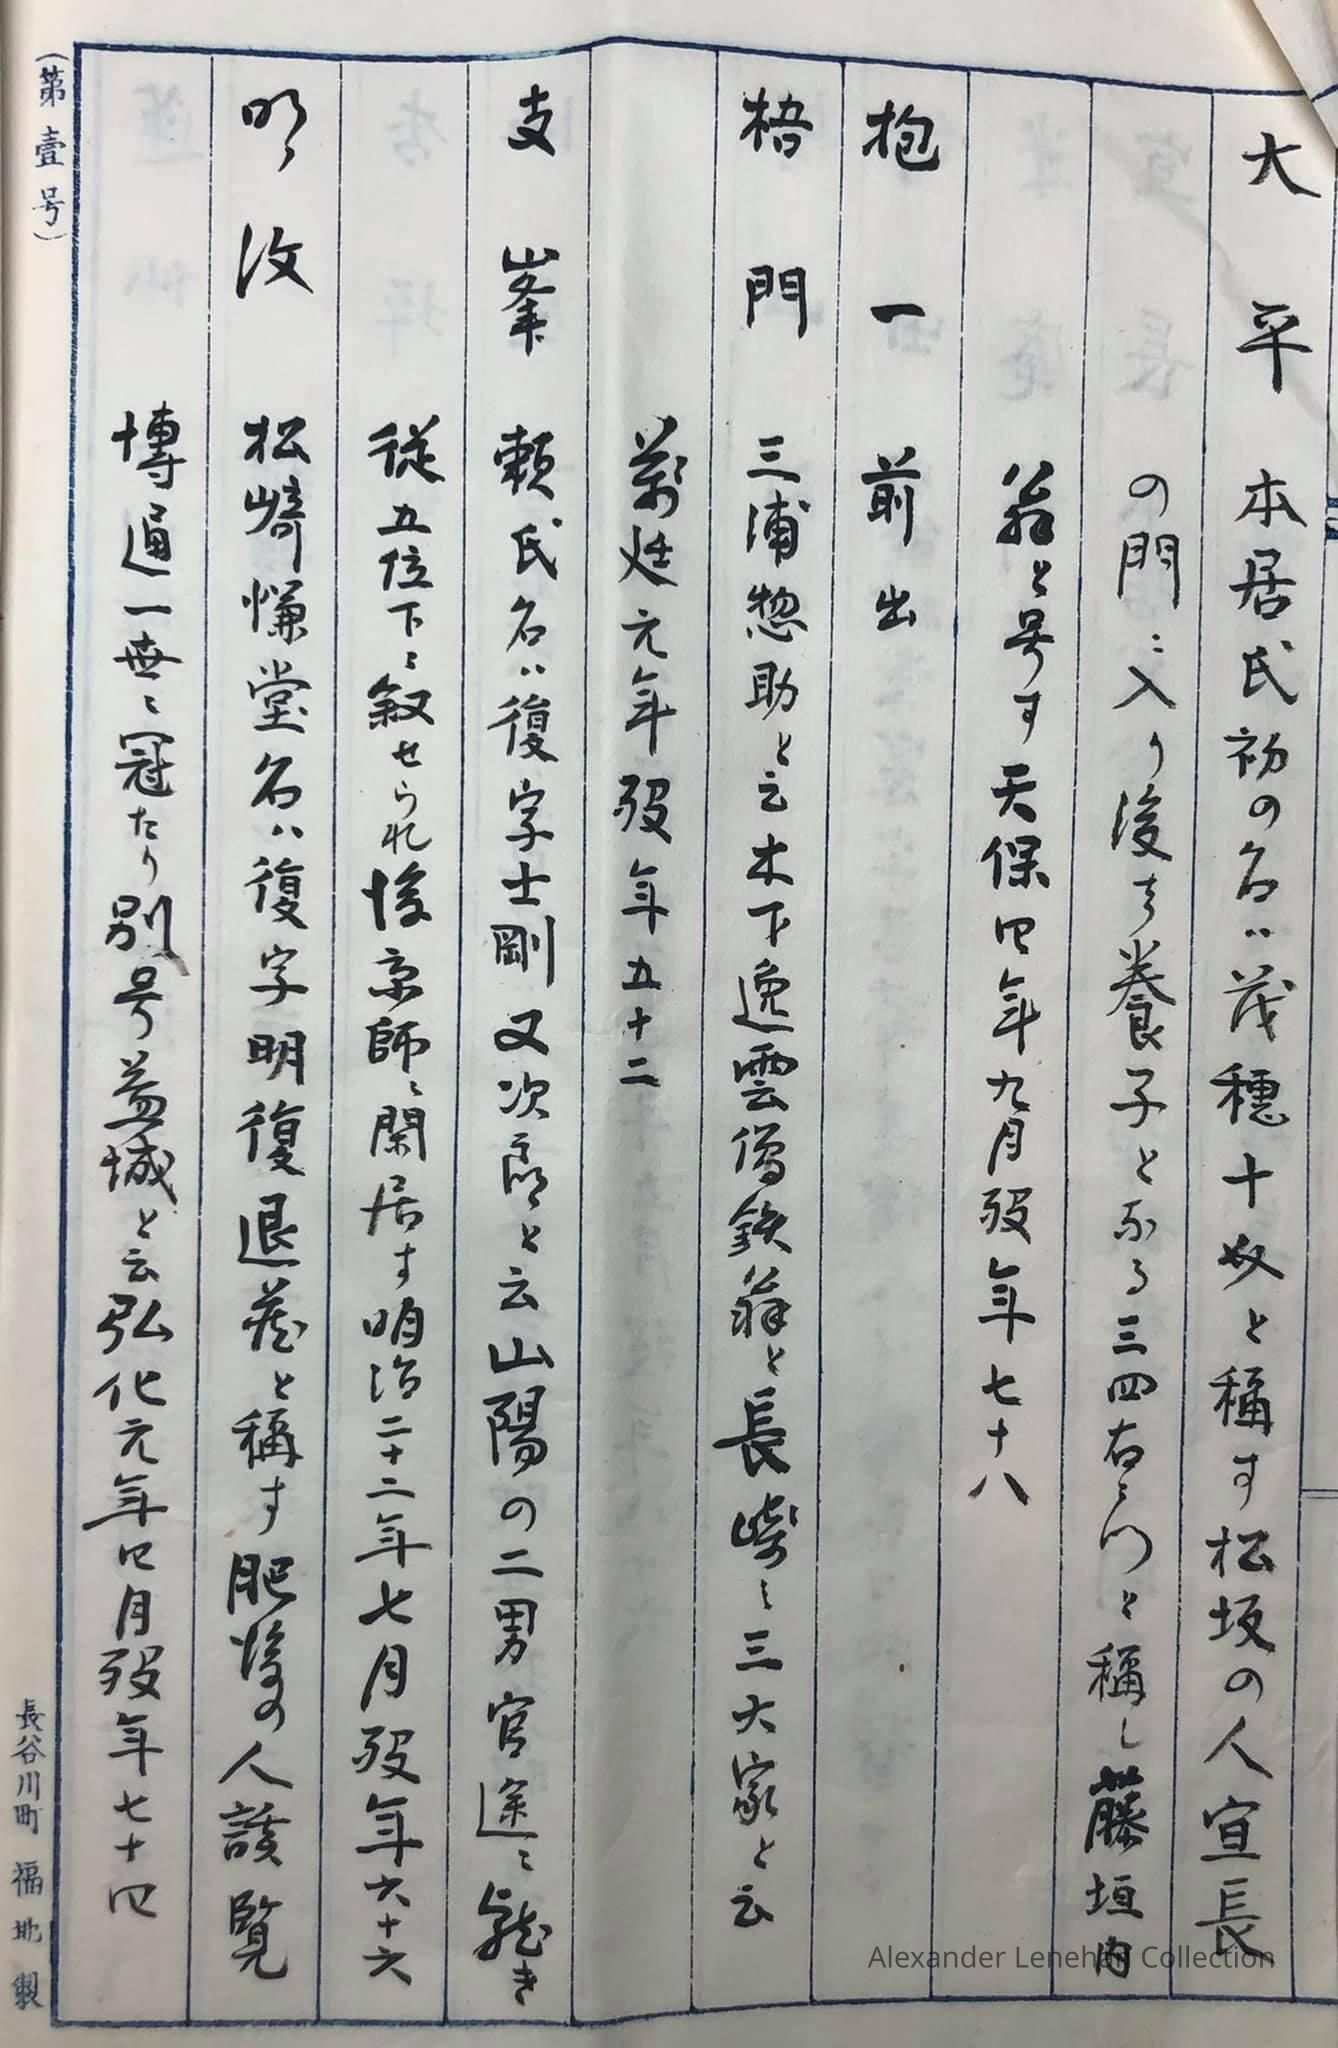 大平 本居氏初の名ハ茂穂十奴と稱す松坂の人宣長
の門ニ入り後ち養子となる三四右ヱ門と稱し藤垣内
翁と号す天保四年九月歿年七十八
抱一 前出
梧門 三浦惣助と云木下逸雲僧鉄翁と長崎ニ三大家と云
萬延元年歿年五十二
支峯 頼氏名ハ復字士剛又次郎と云山陽の二男官途ニ就き
従五位下ニ叙せられ後京師ニ閑居す明治二十二年七月歿年六十六
明復 松崎慊堂名ハ復字明復退蔵と稱す肥後の人該覧
博通一世ニ冠たり別号益城と云弘化元年四月歿年七十四
(第壹号)
長谷川町 福地製
Alexander Lenehan Collection